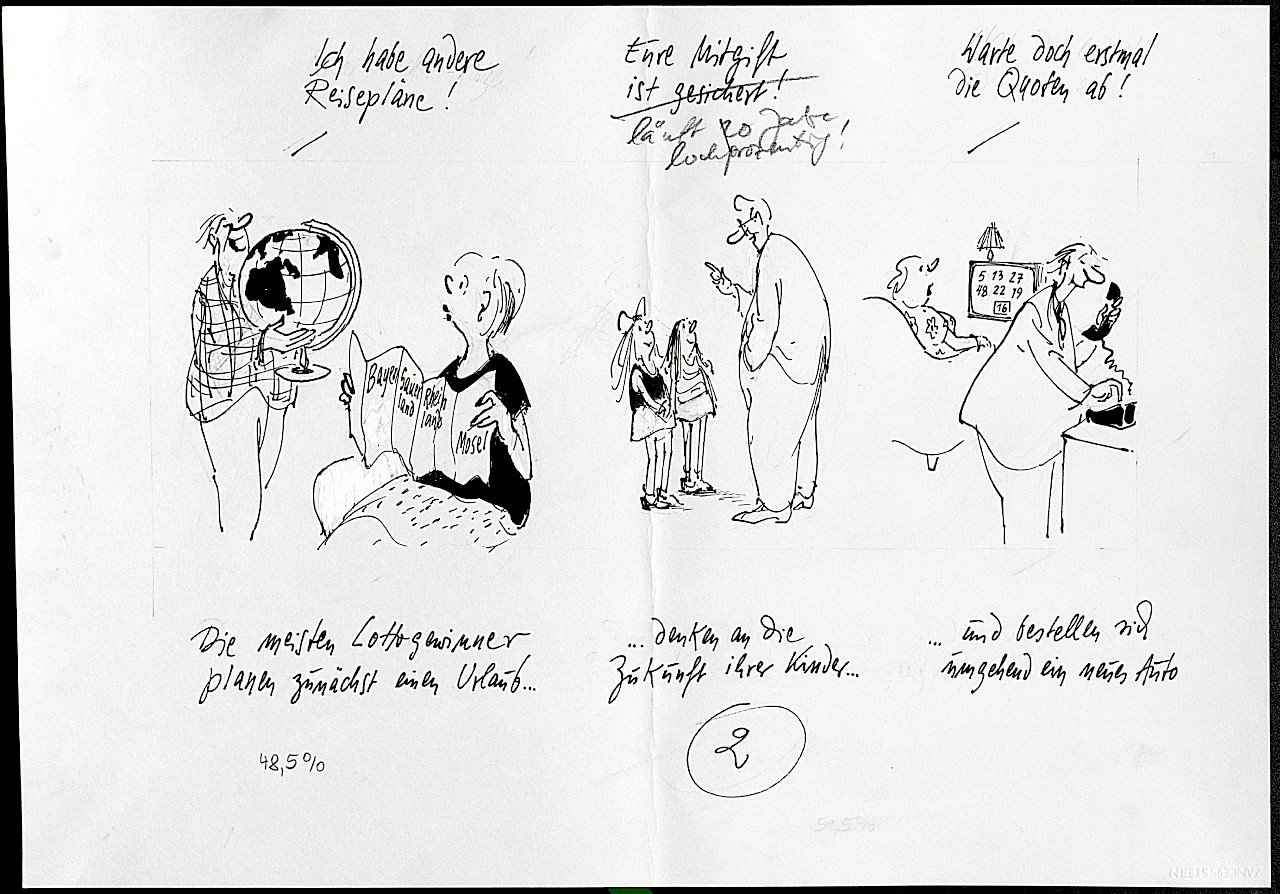 Ich habe andere
Reisepläne!
Eure Mitgift
ist gesichert!
läuft 20 Jahre
hochprozentig!
Warte doch erstmal
die Quoten ab!
5 13 27
48 22 19
16
Bayern
Sauer
land
Rhein
land
Mosel
Die meisten Lottogewinner
planen zunächst einen Urlaub...
...denken an die
Zukunft ihrer Kinder...
... und bestellen sich
umgehend ein neues Auto
2
48,5%
51,5%
ZANDERS STERN